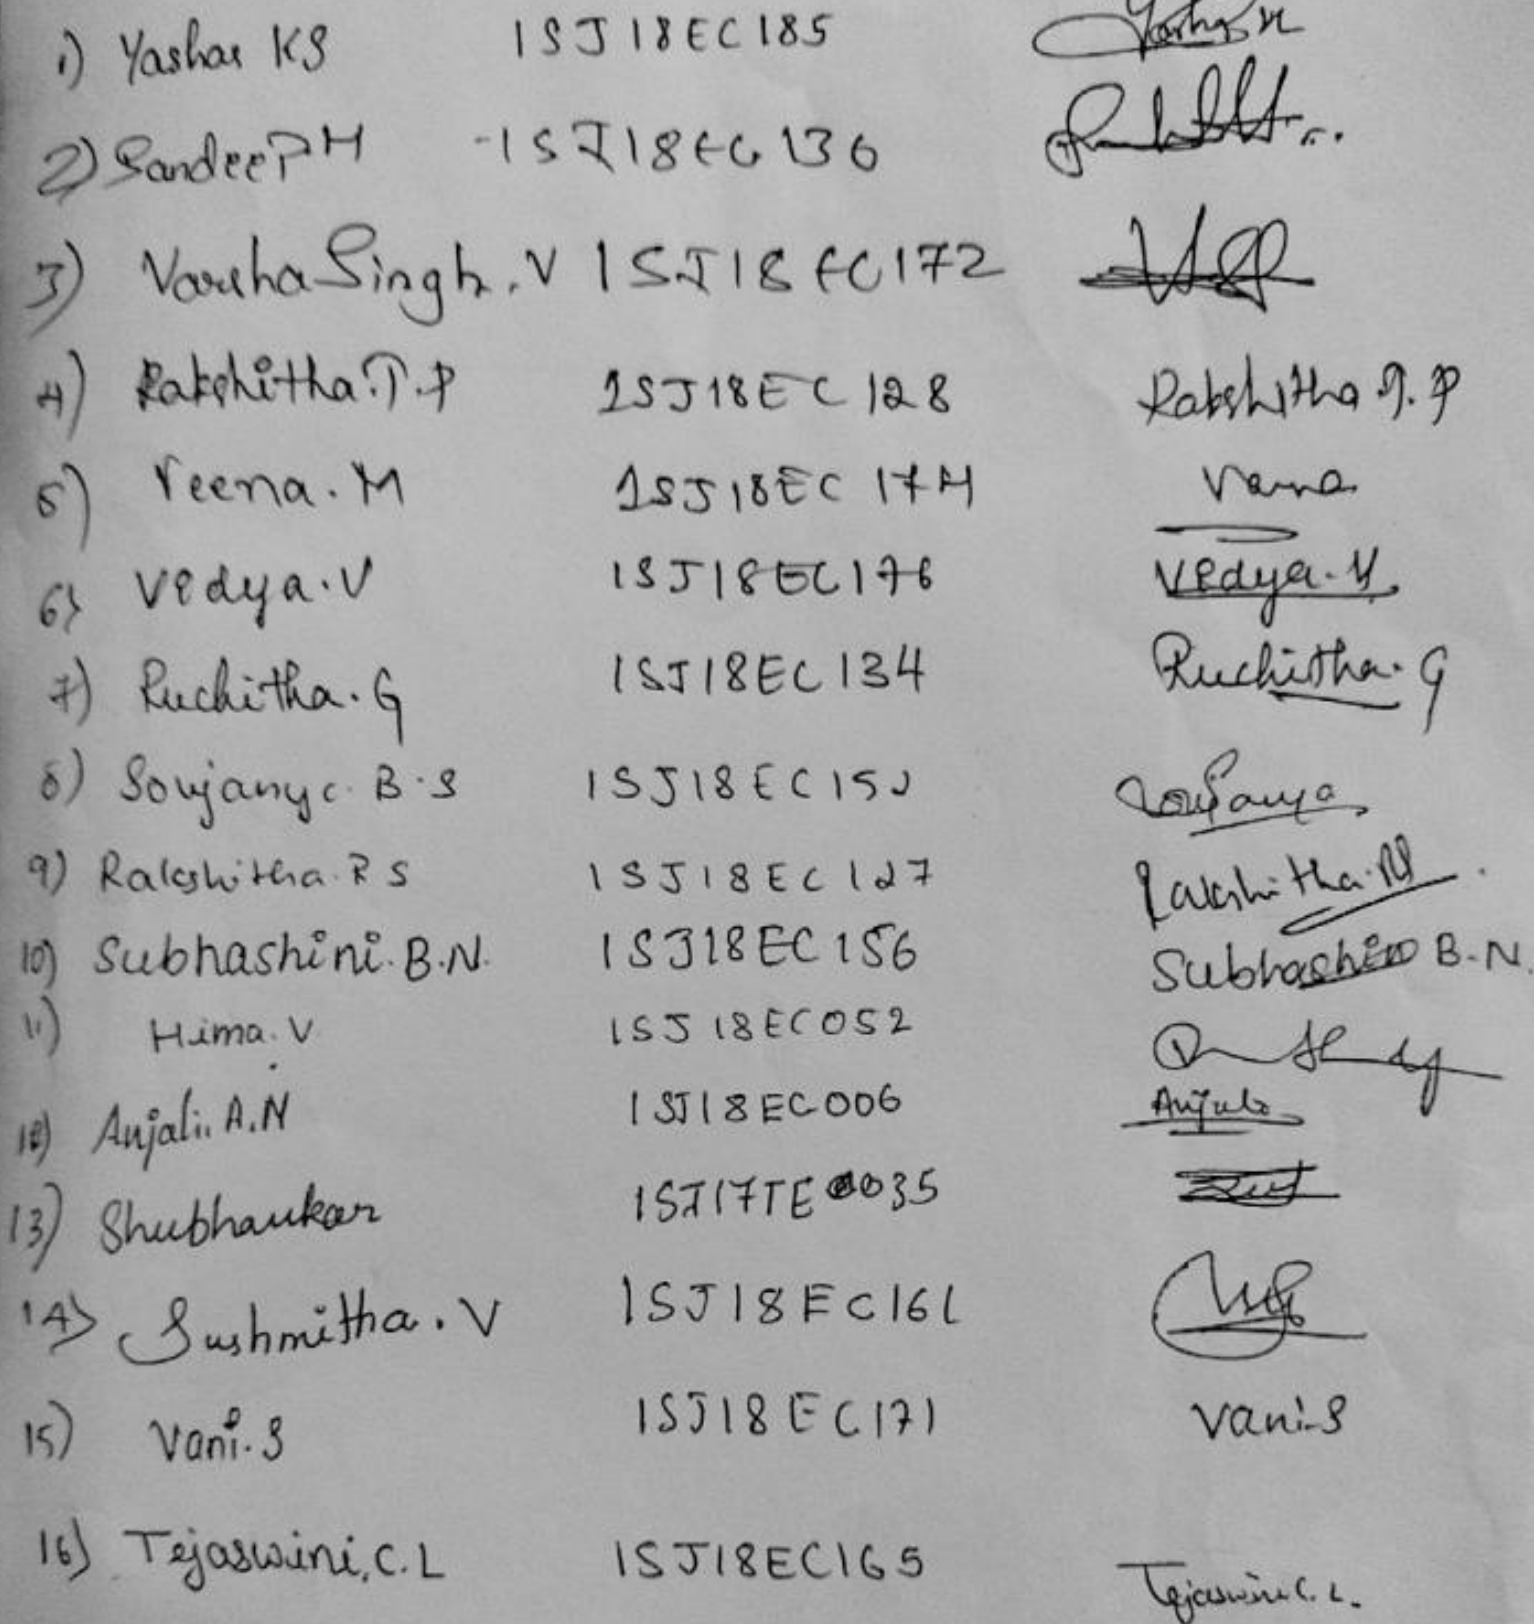 1) Yashas KS 1SJ18EC185
2) Sandeep H -1SJ18EC136
3) Varsha Singh.V 1SJ18EC172 VSP
4) Rakshitha.T.P 1SJ18EC128 Rakshitha T.P
5) Veena.M 1SJ18EC174 Veena
6) Vedya.V 1SJ18EC176 Vedya.V.
7) Ruchitha.G 1SJ18EC134 Ruchitha.G
8) Soujanya B.S 1SJ18EC15 Soujanya
9) Rakshitha.R S 1SJ18EC127 Rakshitha.RS
10) Subhashini.B.N. 1SJ18EC156 Subhashini B.N.
11) Hima.V 1SJ18EC052
12) Anjali.A.N 1SJ18EC006 Anjali
13) Shubhankar 1SJ17TE035
14) Sushmitha.V 1SJ18EC161
15) Vani.S 1SJ18EC171 Vani.S
16) Tejaswini.C.L 1SJ18EC165 Tejaswini C.L.